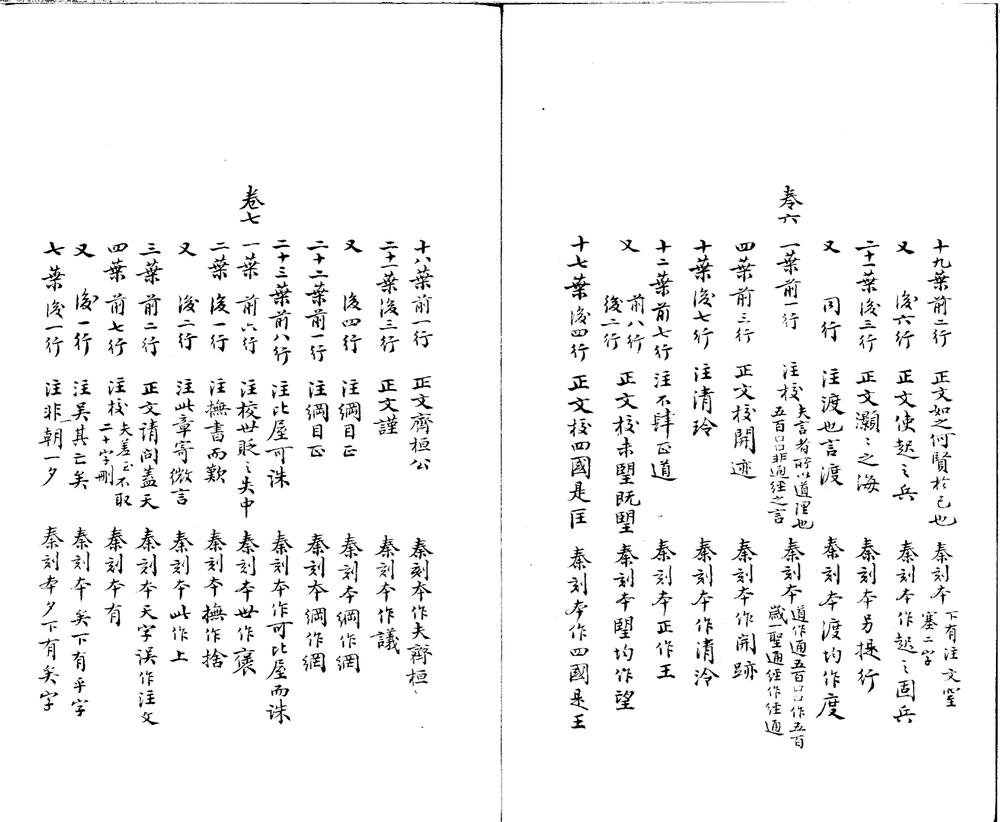 十九葉前二行 正文如之何賢於己也 秦刻本下有注文窒塞二字
又 後六行 正文使起之兵 秦刻本作起之固兵
二十一葉後三行 正文灝之之海 秦刻本另提行
又 同行 注渡也言渡 秦刻本渡均作度
卷六
一葉前一行 注校夫言者所以道理也五百吕非通經之言 秦刻本道作通五百吕作五百歲一聖通經作經通
四葉前三行 正文校開迹 秦刻本作開跡
十葉後七行 注清玲 秦刻本作清泠
十二葉前七行 注不肆正道 秦刻本正作王
又 前八行後二行 正文校未朢既朢 秦刻本朢均作望
十七葉後四行 正文校四國是匡 秦刻本作四國是王
十八葉前一行 正文齊桓公 秦刻本作夫齊桓
二十一葉後三行 正文謹 秦刻本作議
又 後四行 注綱目正 秦刻本綱作網
二十二葉前一行 注綱目正 秦刻本綱作網
二十三葉前八行 注比屋可誅 秦刻本作可比屋而誅
卷七
一葉 前六行 注校世貶之失中 秦刻本世作褒
二葉 後一行 注撫書而歎 秦刻本撫作捨
又 後二行 注此章寄微言 秦刻本此作上
三葉 前二行 正文請問蓋天 秦刻本天字誤作注文
四葉 前七行 注校夫差至不取二十字刪 秦刻本有
又 後一行 注吴其亡矣 秦刻本矣下有乎字
七葉後一行 注非一朝一夕 秦刻本夕下有矣字